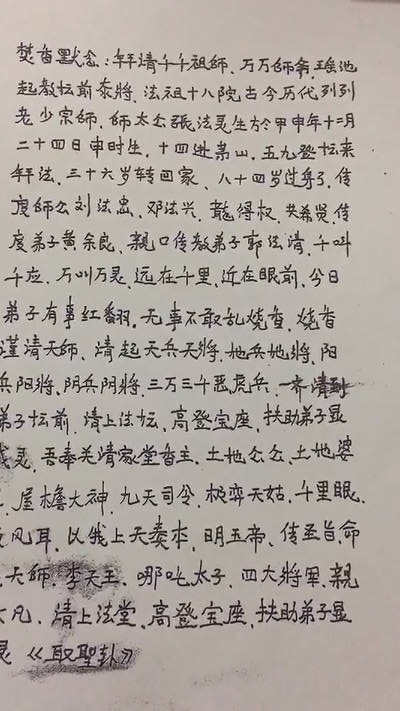 焚香默念:拜请千千祖師、万万師爺、瑶池
起教坛前泰將、法祖十八院古今历代列列
老少宗師、師太公張法灵生於甲申年十二月
二十四日申时生、十四进茅山、五九登坛来
拜法、三十六岁转回家、八十四岁过身了、传
度師公刘法忠、邓法兴、龍得权、
度弟子黄余良、親口传教弟子郭法清、千叫
千应、万叫万灵、远在千里、近在眼前、今日
弟子有事红翻、无事不敢乱烧香、烧香
谨请天師、请起天兵天將、地兵地將、阳
兵阳將、阴兵阴將、三万三千恶虎兵、一齐请到
弟子坛前、请上法坛、高登宝座、扶助弟子显
威灵、吾奉羌请家堂香主、土地公公、土地婆
屋檐大神、九天司令、极弈天姑、千里眼、
风耳、以我上天奏本、明五帝、传圣旨、命
天師、李天王、哪吒太子、四大將軍、親
凡、请上法堂、高登宝座、扶助弟子显
灵《取聖卦》